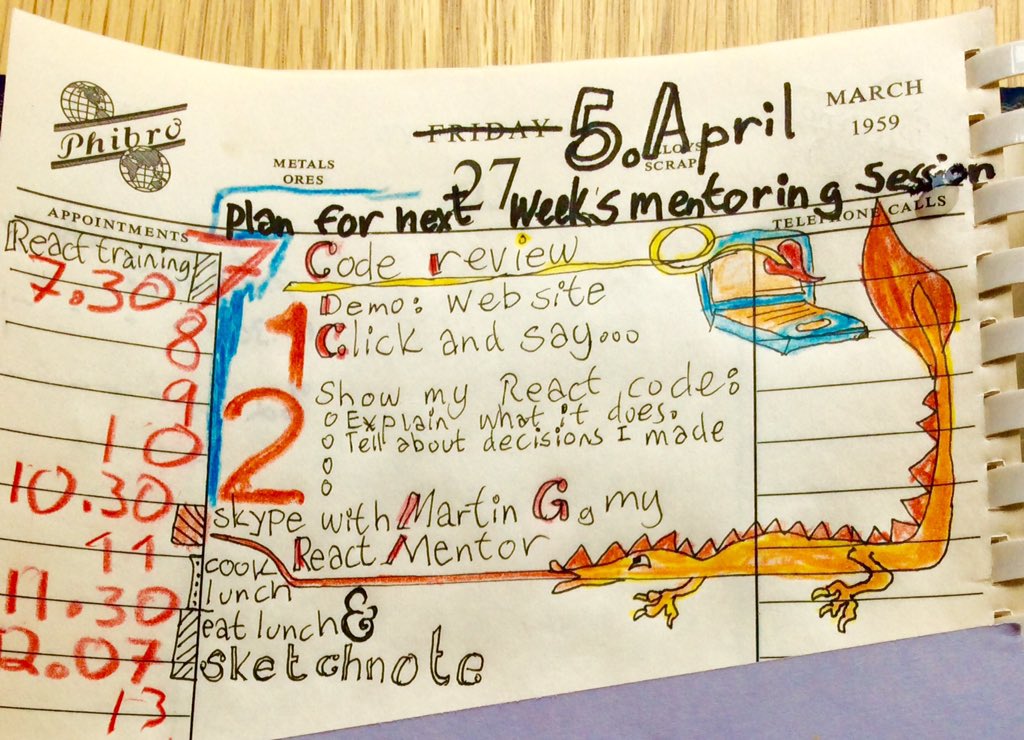 Phibro
METALS
ORES
FRIDAY
27
5. April
SCRAP
MARCH
1959
Plan for next week's mentoring session
APPOINTMENTS
TELEPHONE CALLS
React training
7
7.30
8
9
10
10.30
11
11.30
12.07
13
Code review
1
Demo: website
Click and say...
2
Show my React code:
Explain what it does.
Tell about decisions I made
Skype with Martin G, my
React Mentor
cook
lunch
eat lunch &
sketchnote